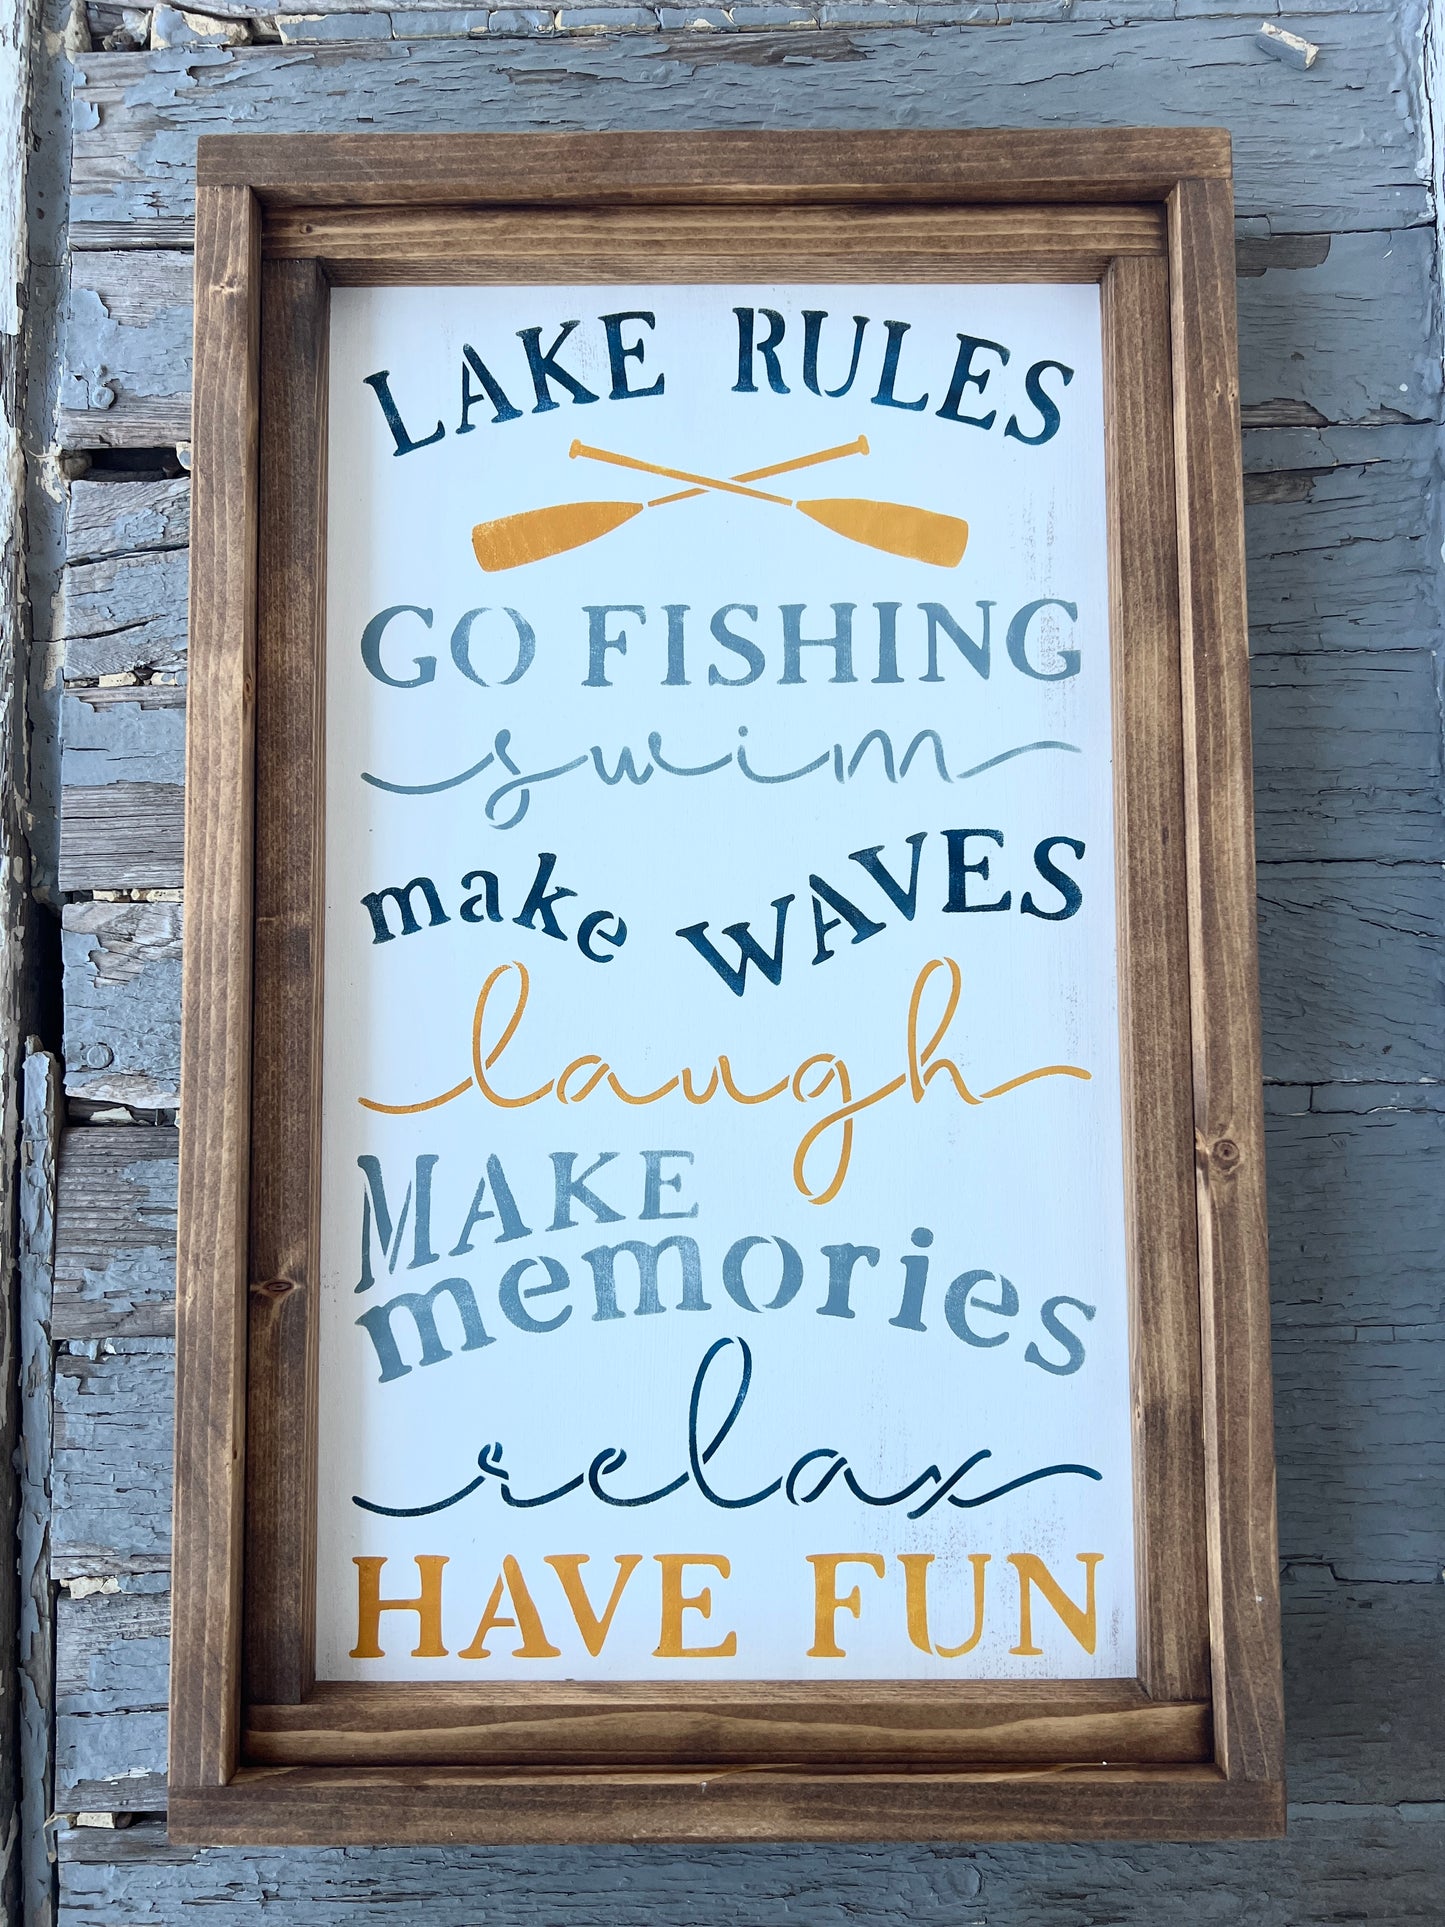 LAKE RULES
GO FISHING
swim
make WAVES
laugh
MAKE
memories
relax
HAVE FUN